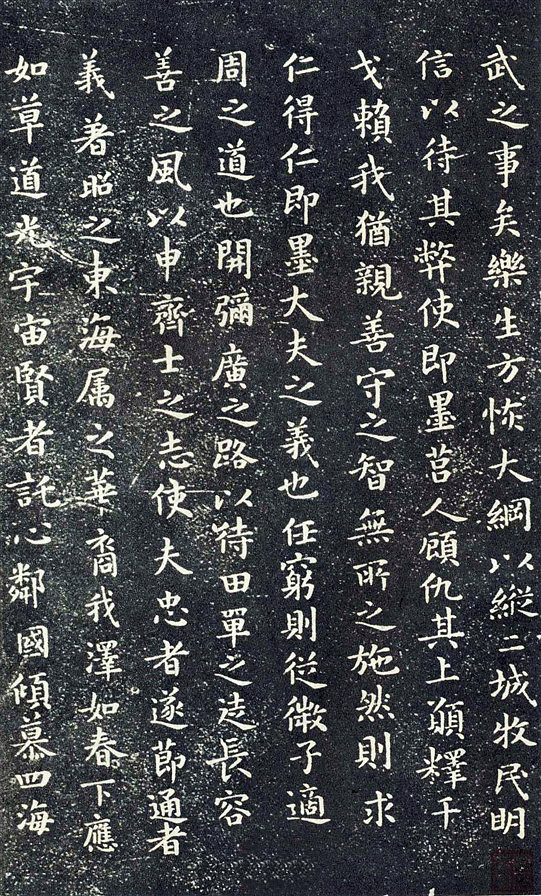 武之事矣樂生方恢大綱以縱二城牧民明
信以待其弊使即墨莒人顧仇其上願釋干
戈賴我猶親善守之智無所之施然則求
仁得仁即墨大夫之義也任窮則從微子適
周之道也開彌廣之路以待田單之徒長容
善之風以申齊士之志使夫忠者遂節通者
義著昭之東海属之華裔我澤如春下應
如草道光宇宙賢者託心鄰國傾慕四海